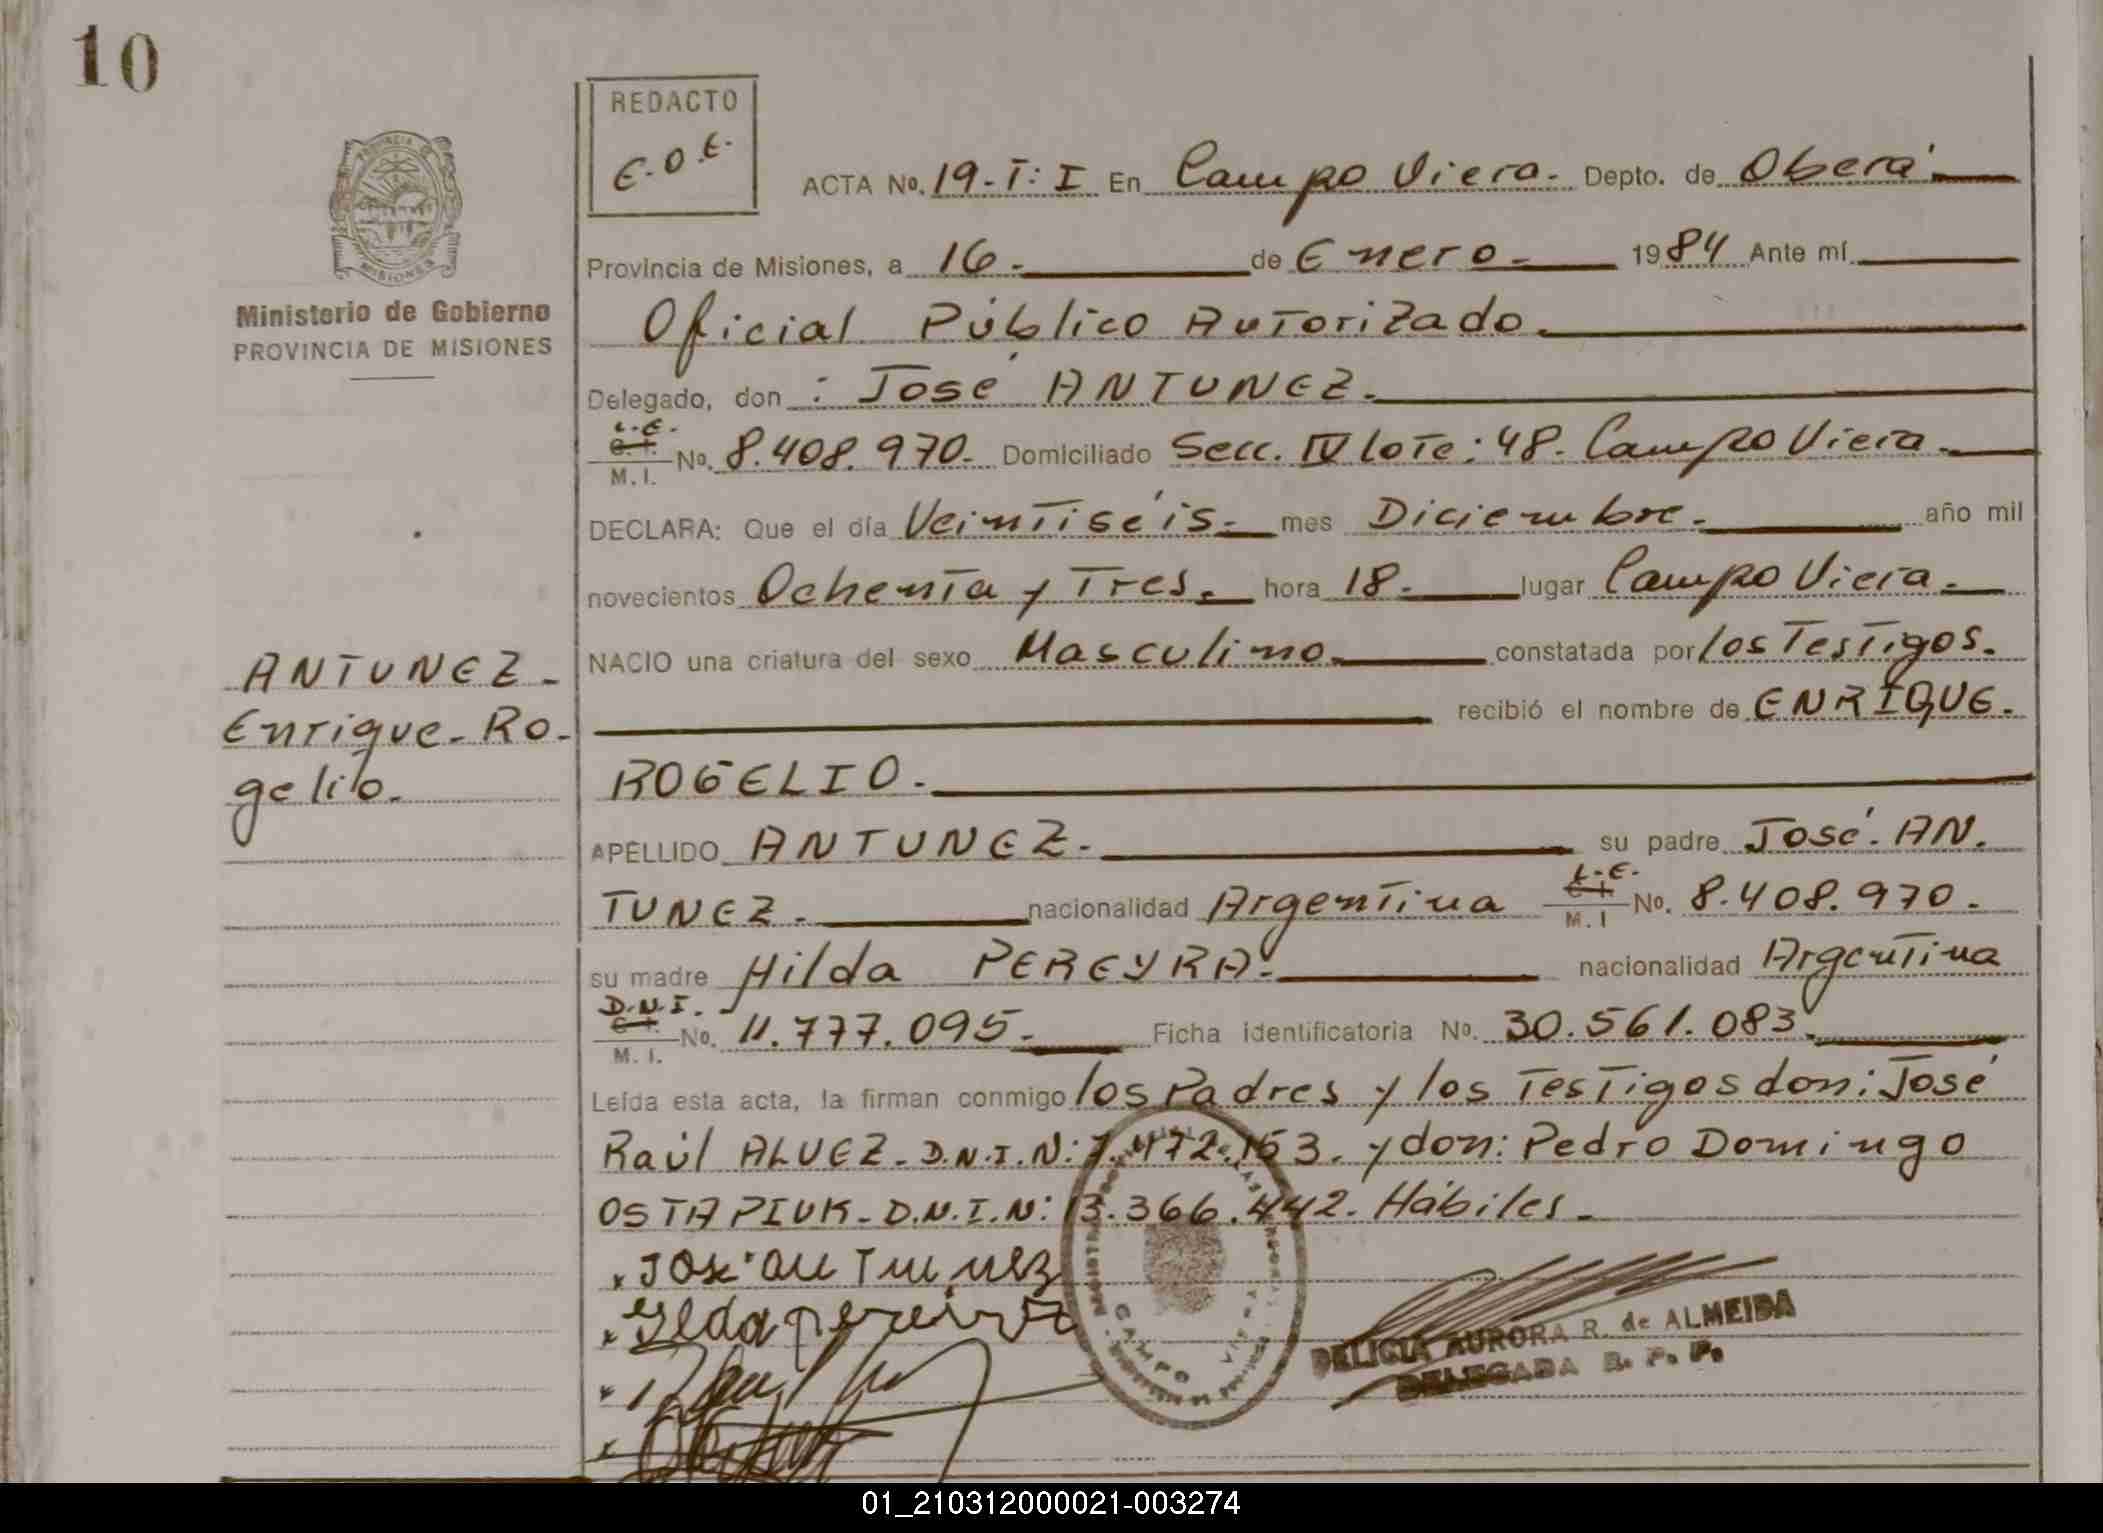 10
REDACTO
E.O.E.
ACTA No. 19-T: I En Campo Viera. Depto. de Oberá
Provincia de Misiones, a 16 de Enero 1984 Ante mí
Ministerio de Gobierno
PROVINCIA DE MISIONES
Oficial Público Autorizado.
Delegado, don : José ANTUNEZ.
L.E.
C. I.
M. I. No. 8.408.970. Domiciliado Secc. IV lote: 48. Campo Viera
DECLARA: Que el día Veintiséis mes Diciembre. año mil
novecientos Ochenta y Tres. hora 18. lugar Campo Viera.
NACIO una criatura del sexo Masculino constatada por los Testigos.
recibió el nombre de ENRIQUE.
ROGELIO.
ANTUNEZ-
Enrique-Ro-
gelio.
APELLIDO ANTUNEZ. su padre José. AN.
L.E.
C. I.
TUNEZ. nacionalidad Argentina M. I No. 8.408.970.
su madre Hilda PEREYRA. nacionalidad Argentina
D.N.I.
C. I.
M. I. No. 11.777.095. Ficha identificatoria No. 30.561.083.
Leída esta acta, la firman conmigo los Padres y los Testigos don: José
Raúl ALVEZ-D.N.I.N: 7.472.153. y don: Pedro Domingo
OSTAPIUK-D.N.I.N: 13.366.442. Hábiles.
DELICIA AURORA R. de ALMEIDA
DELEGADA R. P. P.
CAMPO
01_210312000021-003274